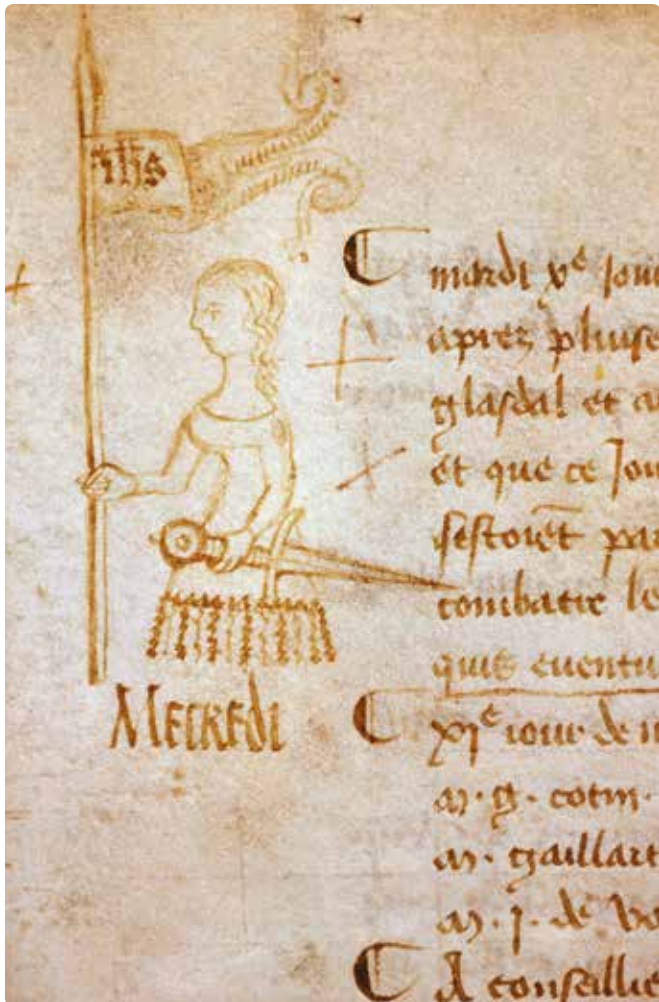 ihs
mardi xe jour
apres pluise
glasdal et ca
et que ce jou
sestoiēt par
combatre le
quis eventu
MECREDI
xie jour de m
m. g. cotin.
m. gaillart
m. j. de
A conseillie